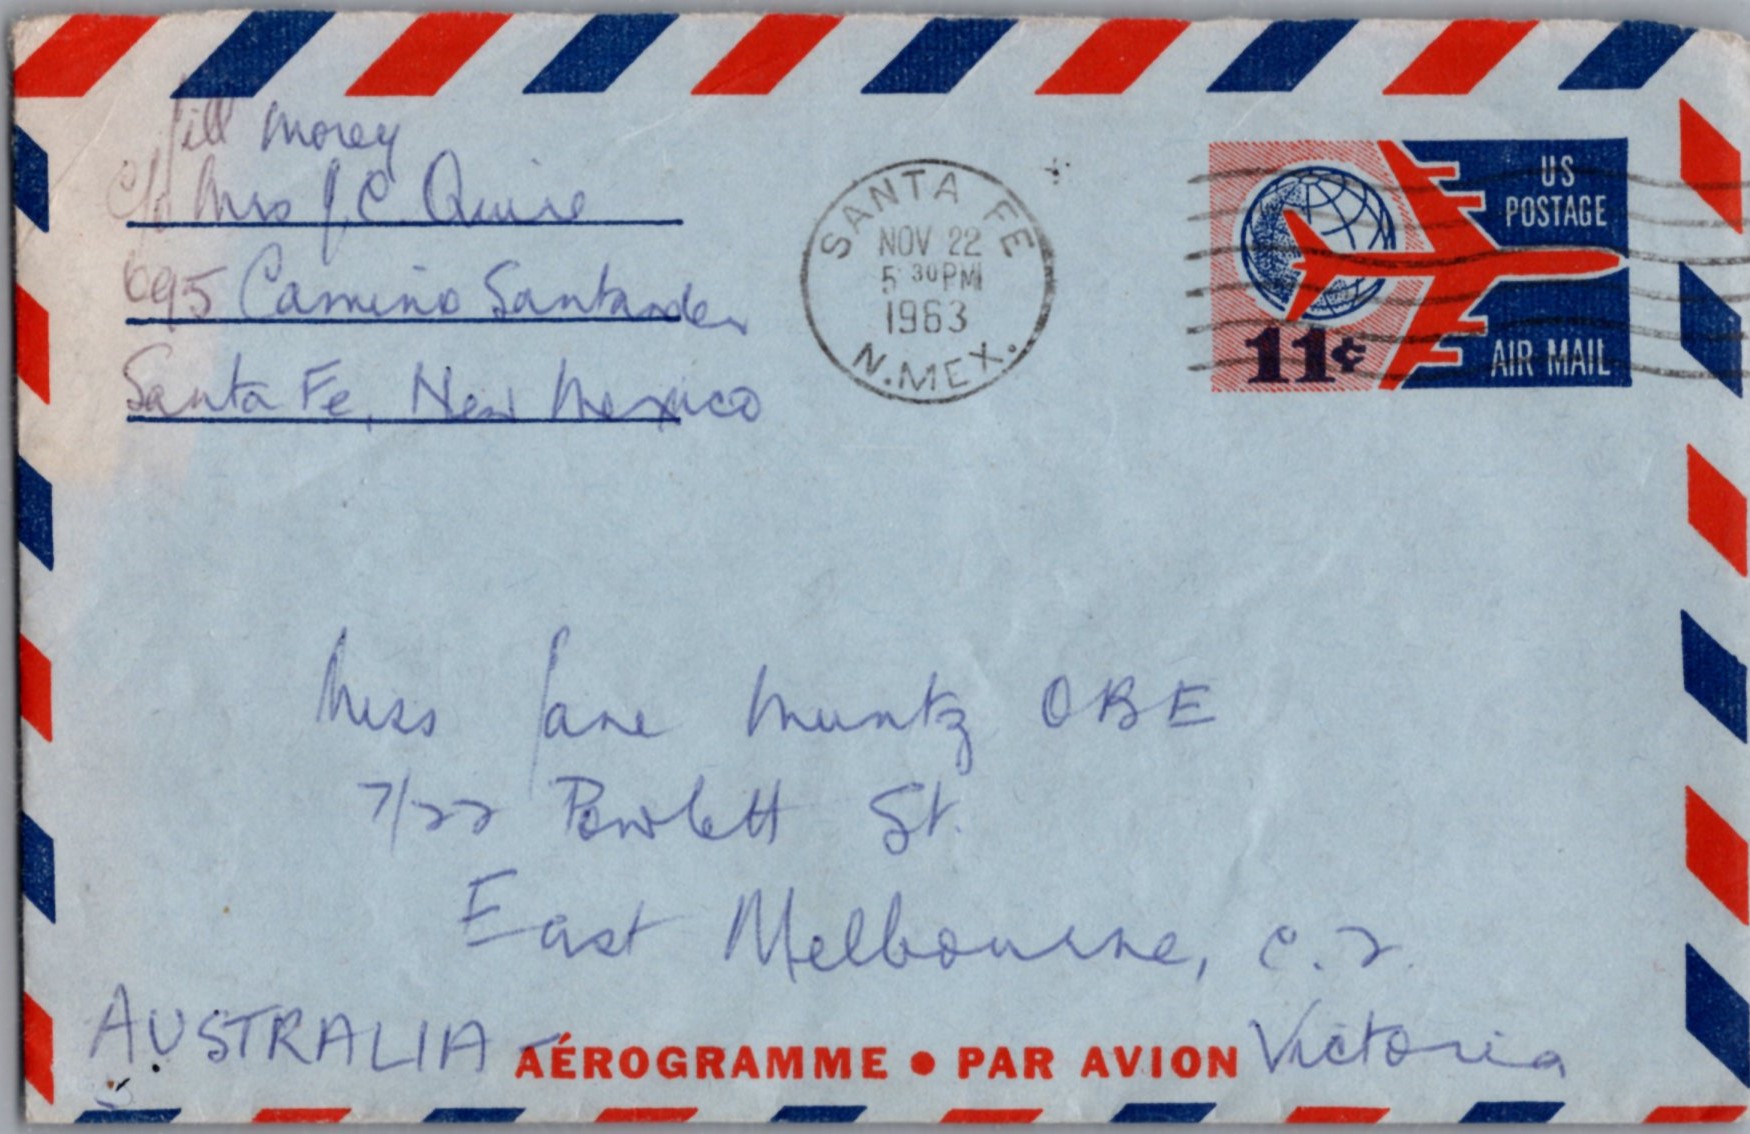 Jill Morey
c/o Mrs J. C. Quire
695 Camino Santander
Santa Fe, New Mexico
SANTA FE
NOV 22
5 30 PM
1963
N. MEX.
US
POSTAGE
11¢
AIR MAIL
Miss Jane Muntz OBE
7/22 Powlett St.
East Melbourne, C.2.
Victoria
AUSTRALIA
AÉROGRAMME • PAR AVION